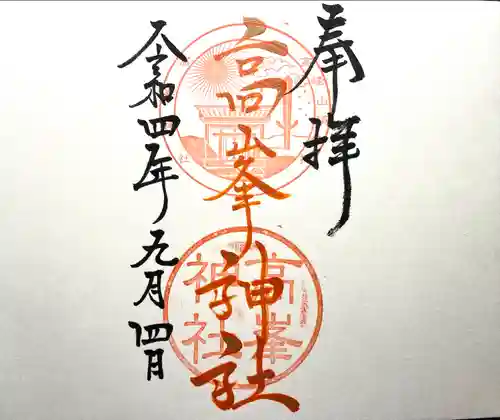 奉拝
高峯神社
令和四年九月四日
高峯
神社